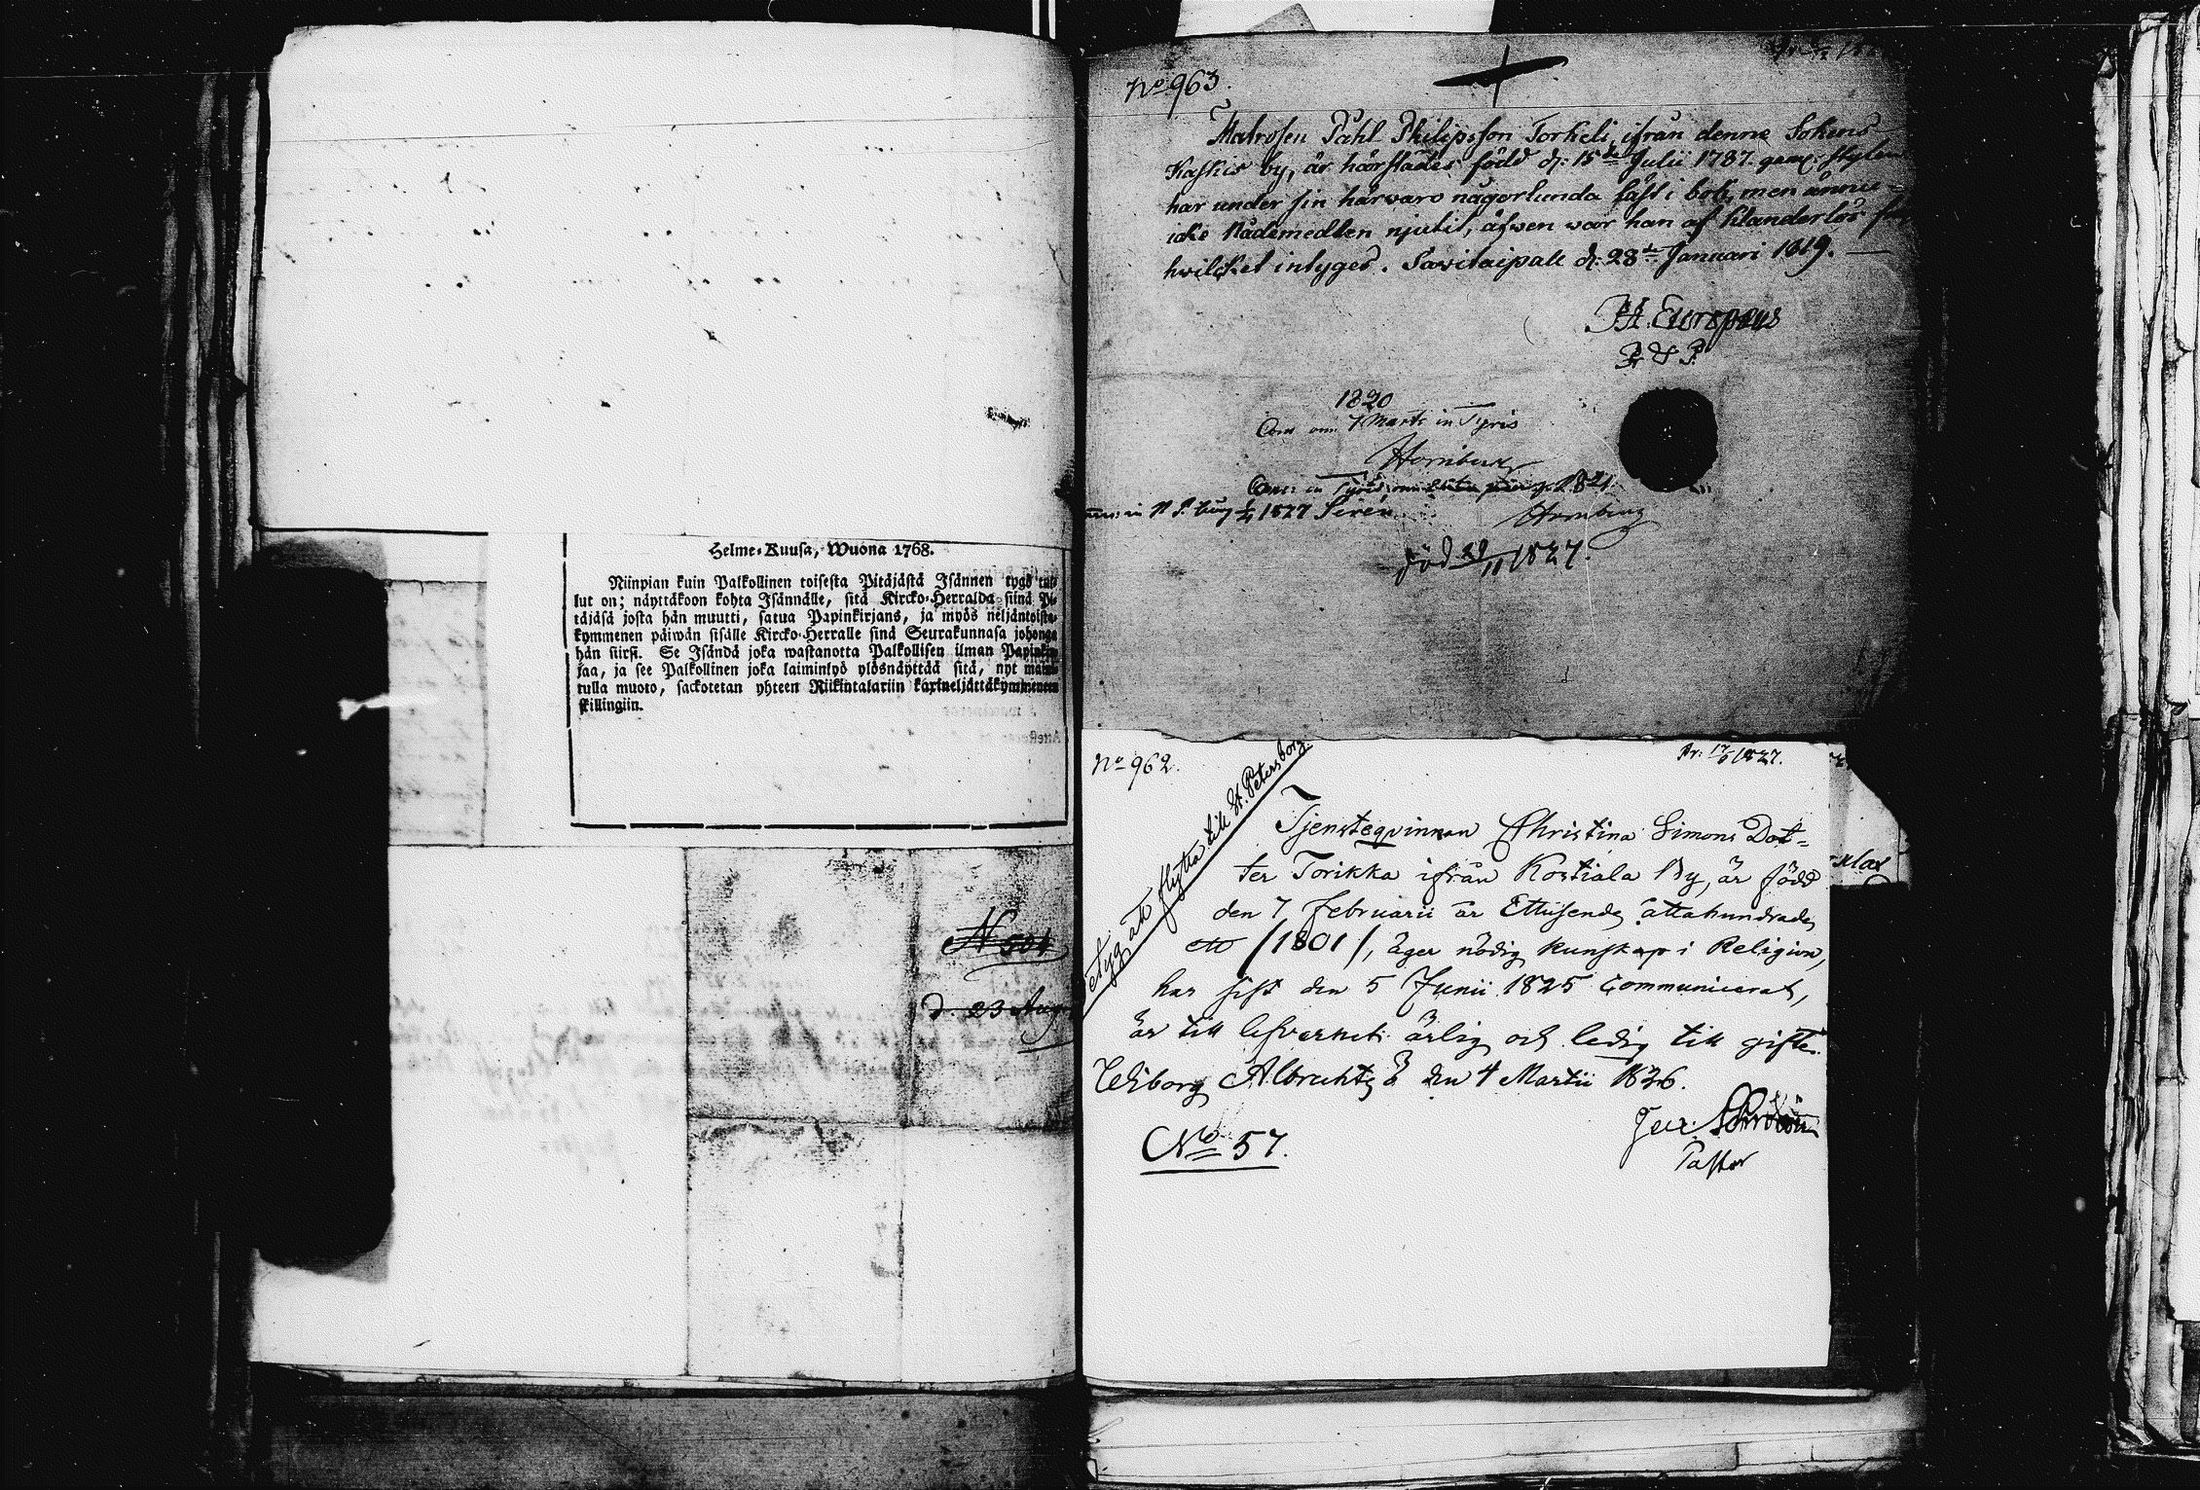 Helme-Kuusa, Wuona 1768.
Niinpian kuin Palkollinen toisesta Pitäjästä Isännen tygö tul-
lut on; näyttäkoon kohta Isännälle, sitä Kircko-Herralda siinä Pi-
täjäsä josta hän muutti, saatua Papinkirjans, ja myös neljäntoista-
kymmenen päiwän sisälle Kircko-Herralle sinä Seurakunnasa johonga
hän siirsi. Se Isändä joka wastanotta Palkollisen ilman Papinkir-
jaa, ja see Palkollinen joka laiminlyö ylösnäyttää sitä, nyt mai-
tulla muoto, sackotetan yhteen Riikintalariin kaxineljättäkymmeneen
skillingiin.
N 504
d. 23 Aug
No 963.
Matrosen Påhl Philipsson Torkeli, ifrån denne Sokens
Kaskis by, är härstädes född d: 15de Julii 1787.
har under sin härvaro någorlunda läst i bok, men ännu
icke Nådemedlen njutit, äfwen war han af klanderlös
hvilcket intyges. Savitaipale d: 28de Januari 1819.
H. Europæus
P. & P.
1820
Com 7 Marti in
Hornborg
1824
1827 Sirén
Hornborg
död 29/11 1827.
No 962.
1827.
att flytta till St. Petersborg.
Tjenstequinnan Christina Simons Dot-
ter Torikka ifrån Kostiala By, är född
den 7 Februarii år Ettusende åttahundrade
ett /1801/, äger nödig kunskap i Religion,
har sist den 5 Junii 1825 Communicerat,
är till lefvernet ärlig och ledig till gifte.
Wiborg den 4 Martii 1826.
Pastor
No 57.